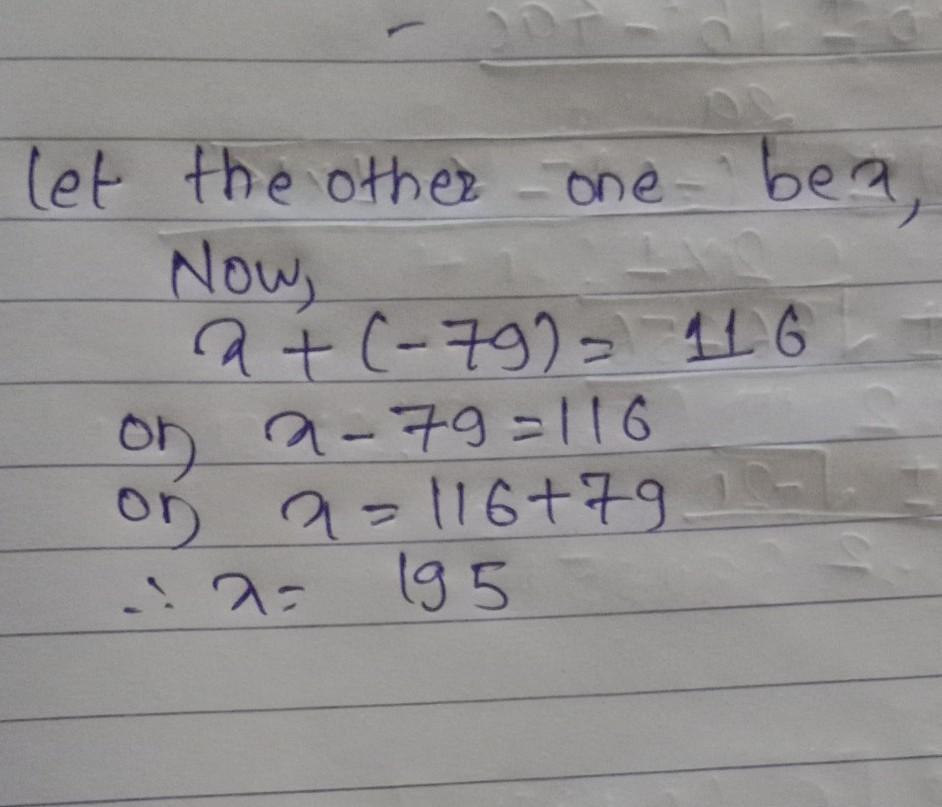 let the other one be x,
Now,
x + (-79) = 116
or, x - 79 = 116
or, x = 116 + 79
∴ x = 195